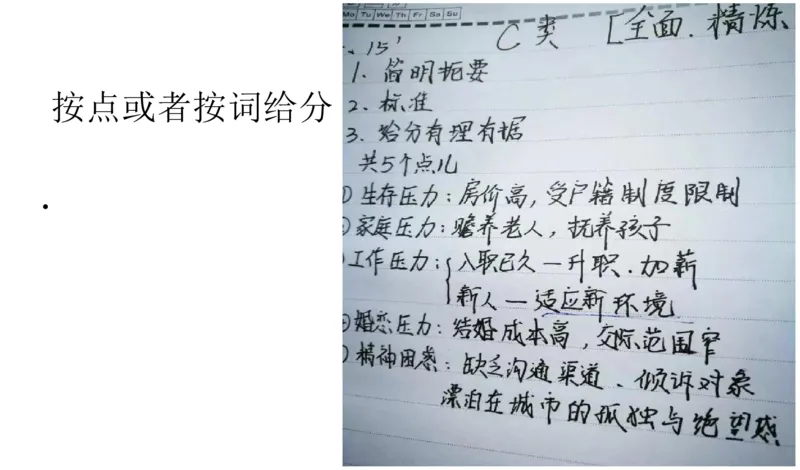 按点或者按词给分
Mo Tu We Th Fr Sa Su
一、15'
C类 [全面.精炼
1. 简明扼要
2. 标准
3. 给分有理有据
共5个点儿
① 生存压力：房价高，受户籍制度限制
② 家庭压力：赡养老人，抚养孩子
③ 工作压力：{入职已久—升职.加薪
新人—适应新环境
④ 婚恋压力：结婚成本高，交际范围窄
⑤ 精神困惑：缺乏沟通渠道、倾诉对象
漂泊在城市的孤独与绝望感